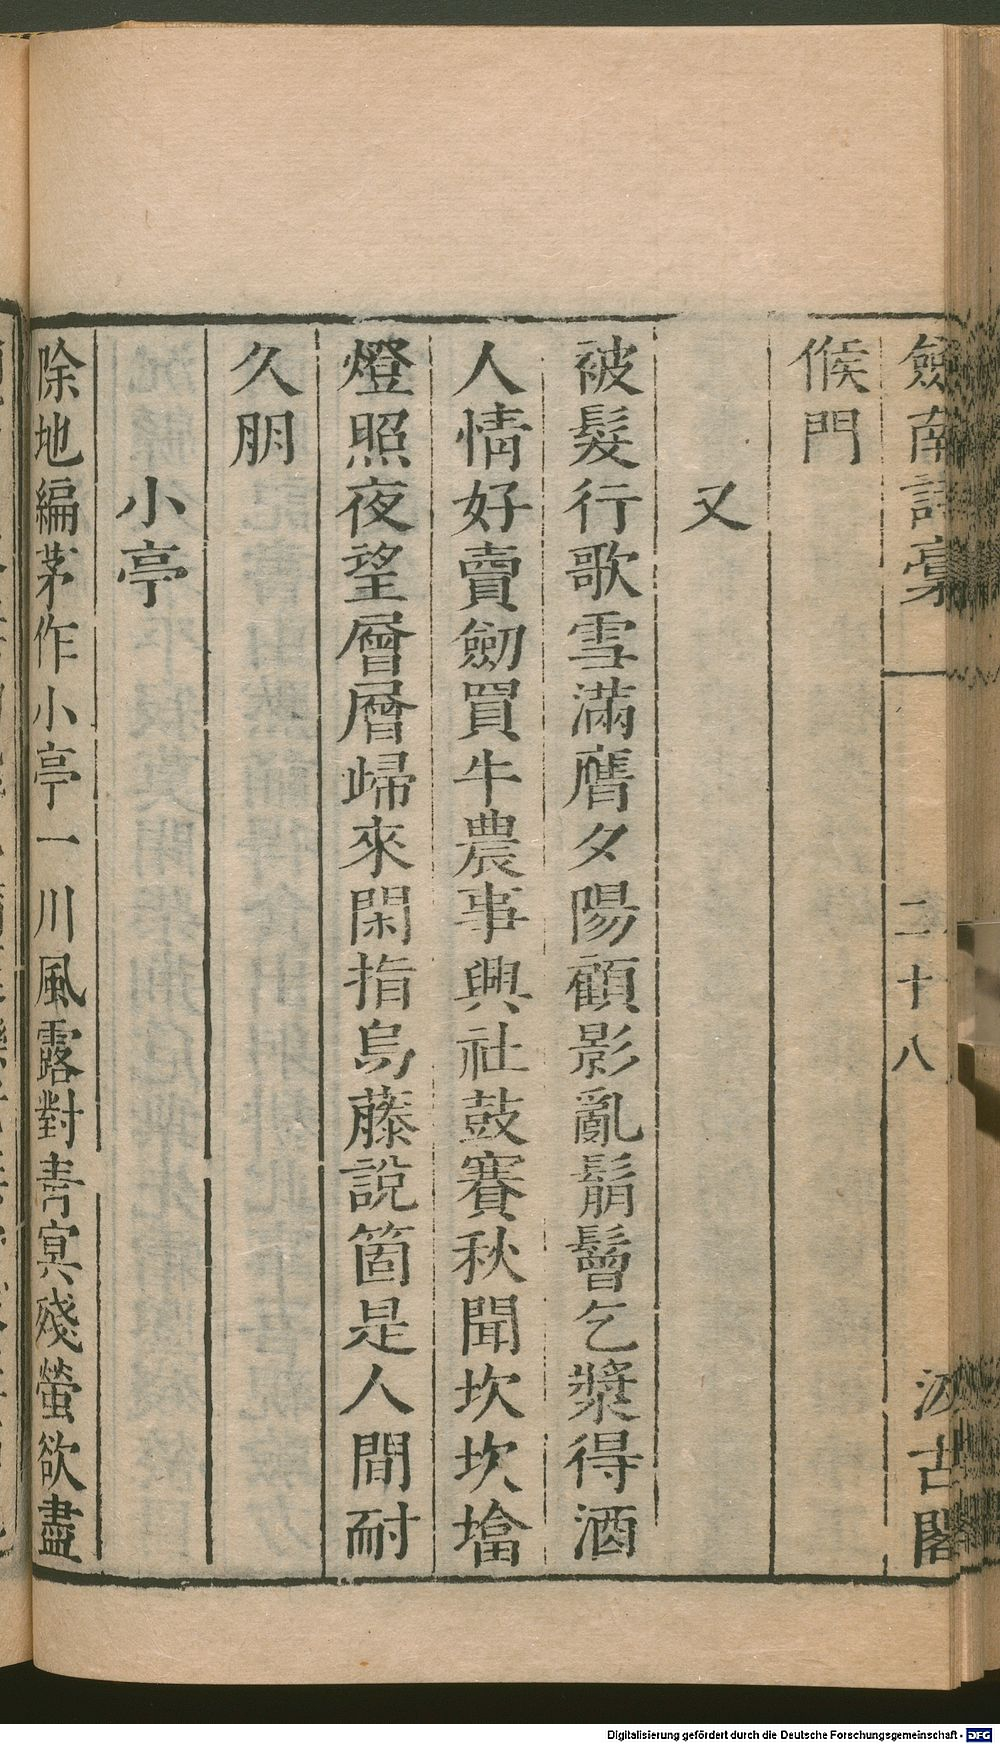 劍南詩稾
二十八
汲古閣
候門
又
被髮行歌雪滿膺夕陽顧影亂鬅鬙乞漿得酒
人情好賣劒買牛農事興社鼓賽秋聞坎坎墖
燈照夜望層層歸來閑指烏藤說箇是人間耐
久朋
小亭
除地編茅作小亭一川風露對青冥殘螢欲盡
Digitalisierung gefördert durch die Deutsche Forschungsgemeinschaft - DFG